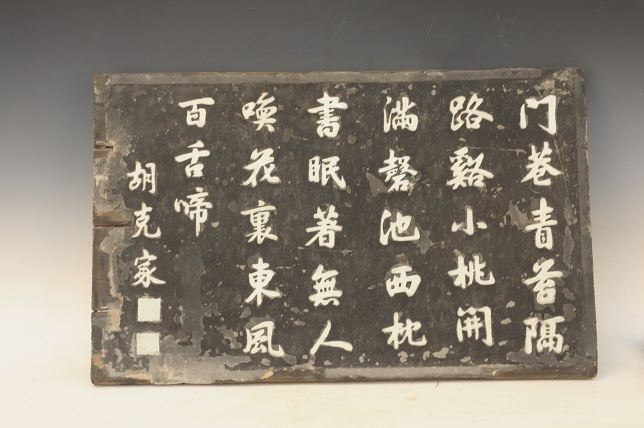 门巷青苔隔
路谿小桃開
滿磬池西枕
書眠著無人
喚花裏東風
百舌啼
胡克家